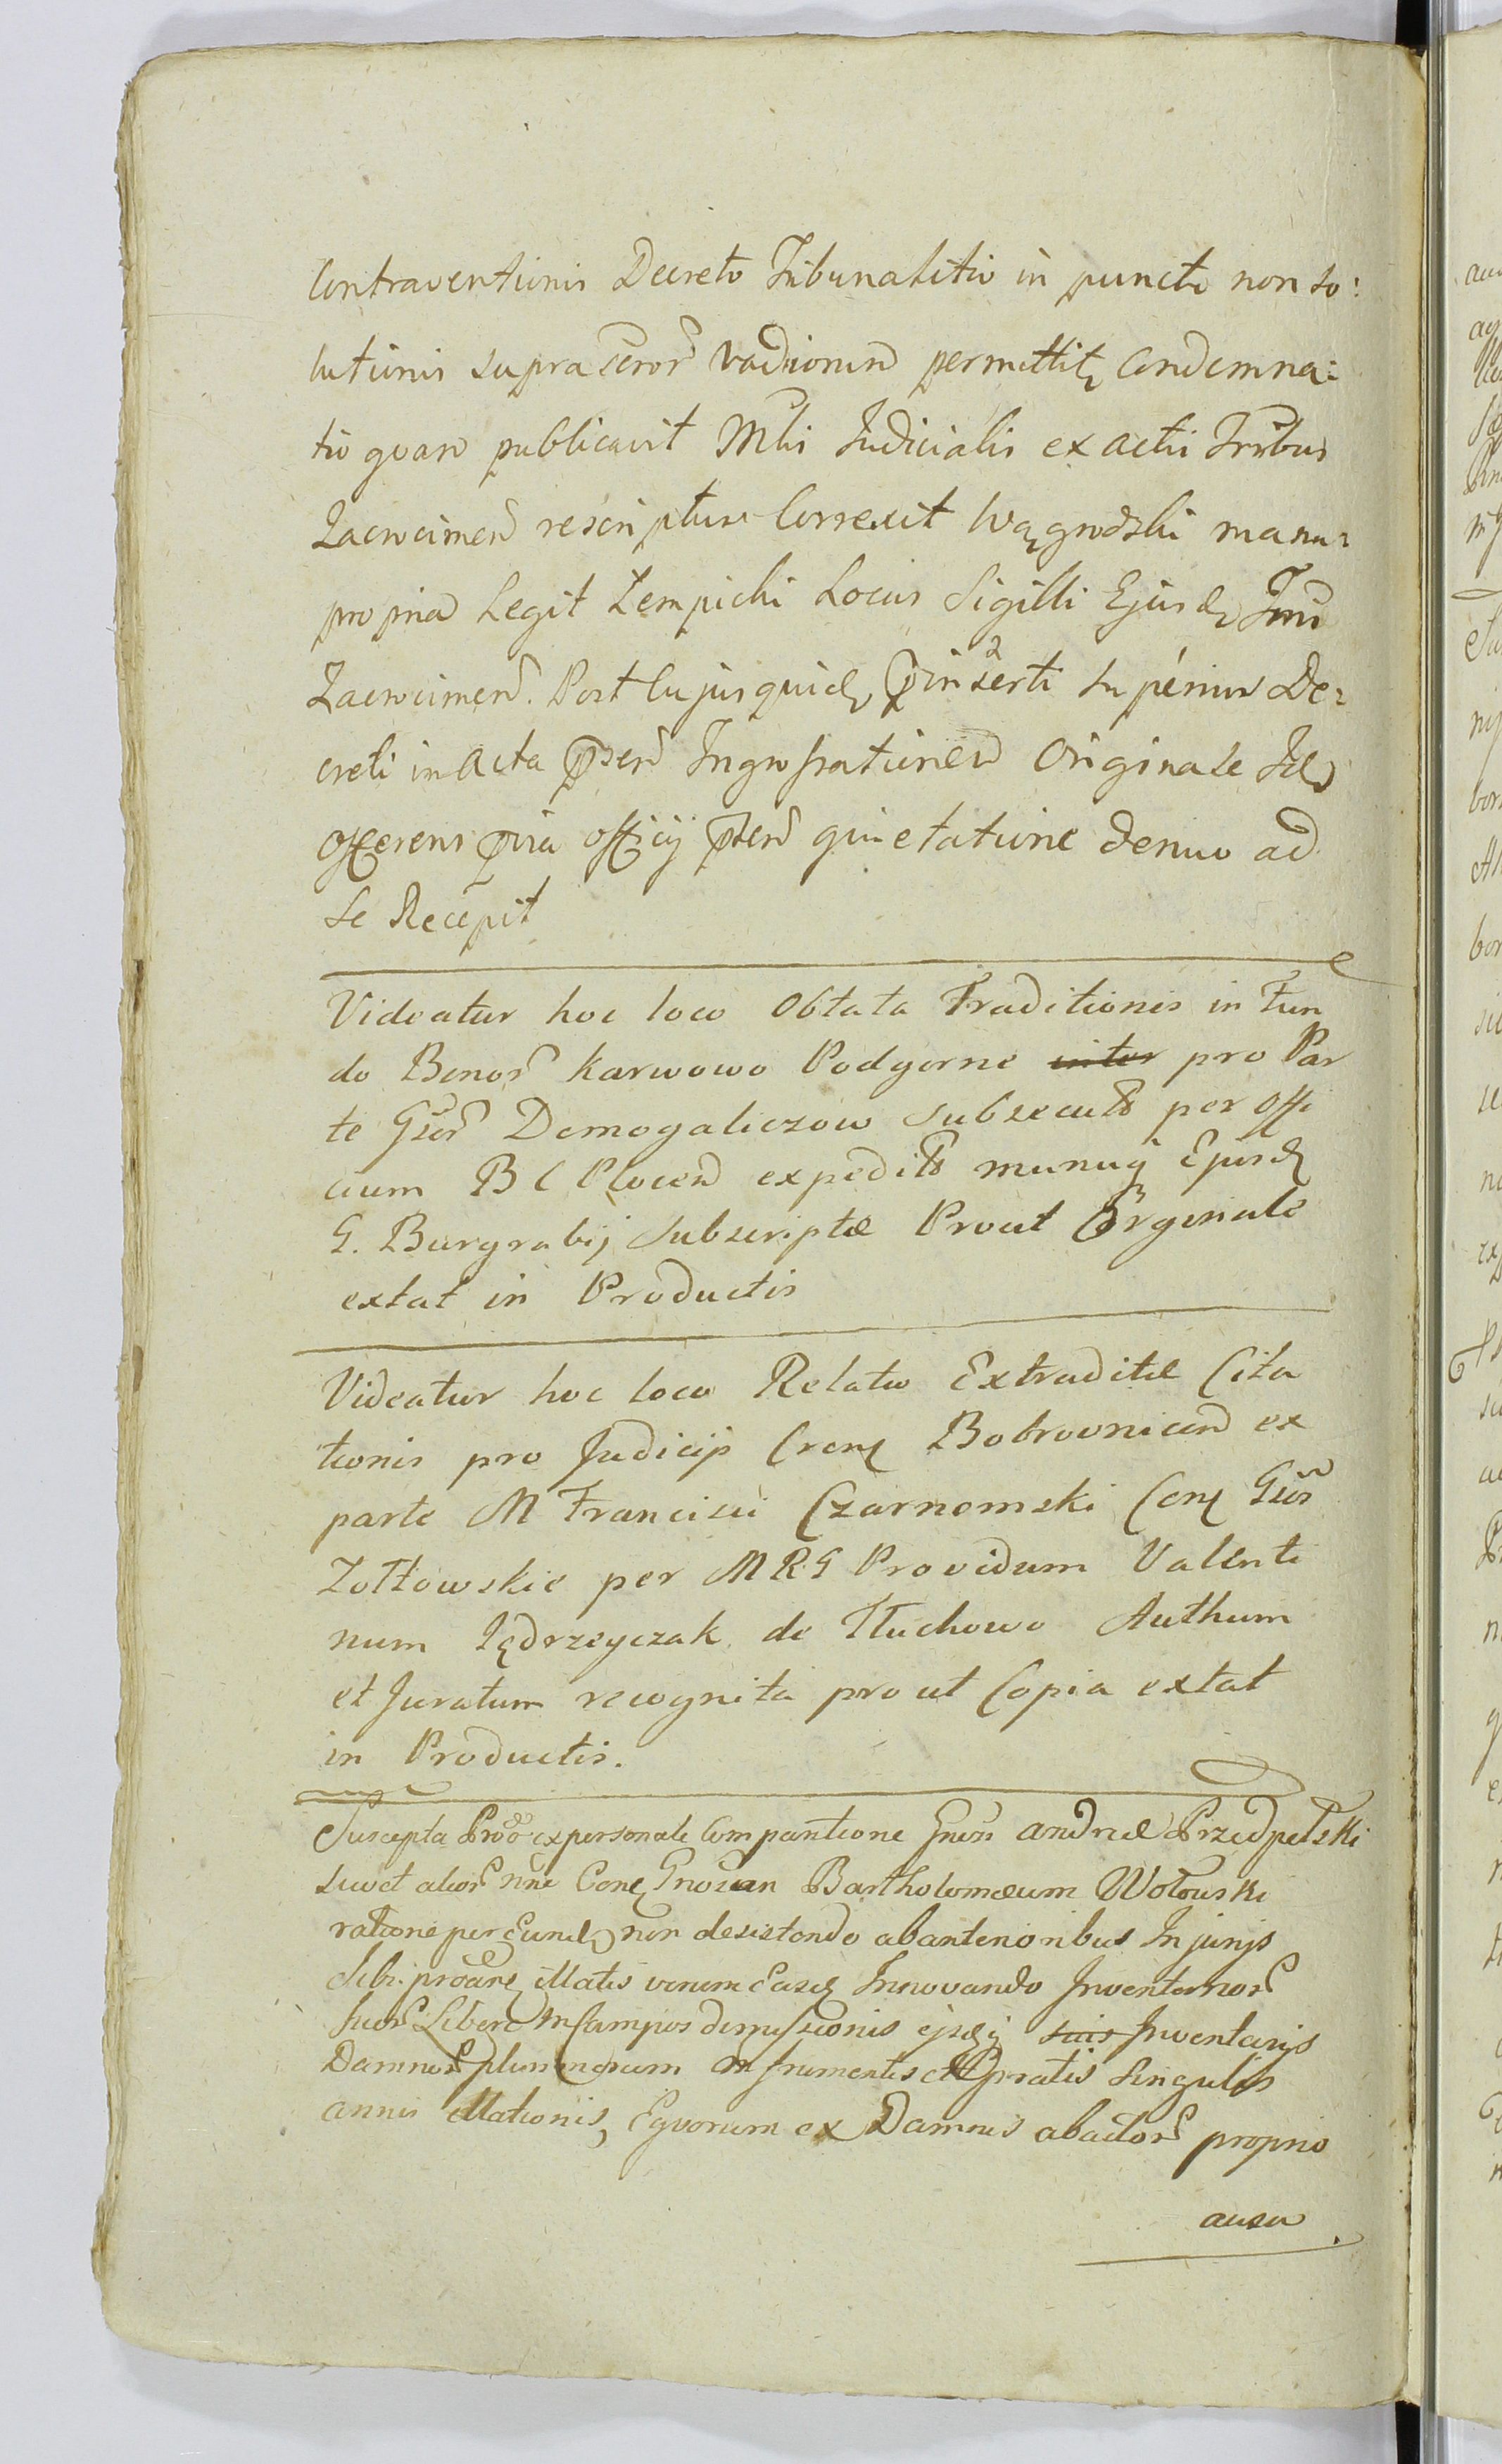 Contraventionis Decreto Tribunalitio in puncto non so:
lutionis supra scror vadiorum permittit Condemna:
tio quam publicavit Mlis Judicialis ex actis Tribus
Zacrocimen rescriptum Correxit Wągrodzki manu
propria Legit Lempicki Locus Sigilli Ejusd Trris
Zacrocimen. Post cujusquid pinserti superius De:
creti in acta psen Ingrossationem Originale Id
offerens officij psen quietatione denuo ad
Se Recepit
Videatur hoc loco Oblata Traditionis in Fun
do Bonor Karwowo Podgorne inter pro Par
te Gsor Domogaliczow Subsecuta per Offi
cium B C Plocen expedita manuq Ejusd
G. Burgrabij Subscriptæ Prout Orginale
extat in Productis
Videatur hoc loco Relatio Extraditæ Cita
tionis pro Judicijs Crens Bobrovnicen ex
parte M Francisci Czarnomski Cont Gsos
Zołtowskie per MRG Providum Valenti
num Jędrzeyczak de Tłuchowo Authum
et Juratum recognita pro ut Copia extat
in Productis.
Suscepta Proo ex personali Comparitione Gnosi Andreæ Przedpełski
suo et alior nne Cont Gnosum Bartholomæum Wołowski
ratione per Eund non desistendo ab anterioribus Injurijs
Sibi illatis verum Easd Innovando Inventarior
Suor Libere in Campos demissionis suis Inventarijs
Damnor plurimorum in frumentis et pratis Singulis
annis illationis, Equorum ex Damnis abactor proprio
ausu